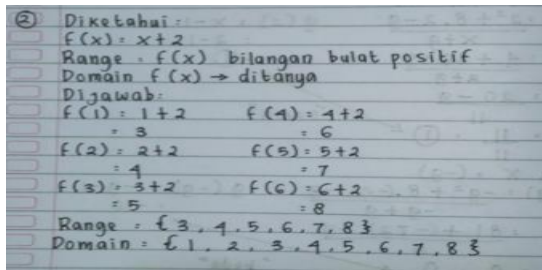 ② Diketahui :
f(x) = x+2
Range = f(x) bilangan bulat positif
Domain f(x) → ditanya
Dijawab:
f(1) = 1+2 f(4) = 4+2
= 3 = 6
f(2) = 2+2 f(5) = 5+2
= 4 = 7
f(3) = 3+2 f(6) = 6+2
= 5 = 8
Range = {3, 4, 5, 6, 7, 8}
Domain = {1, 2, 3, 4, 5, 6, 7, 8}